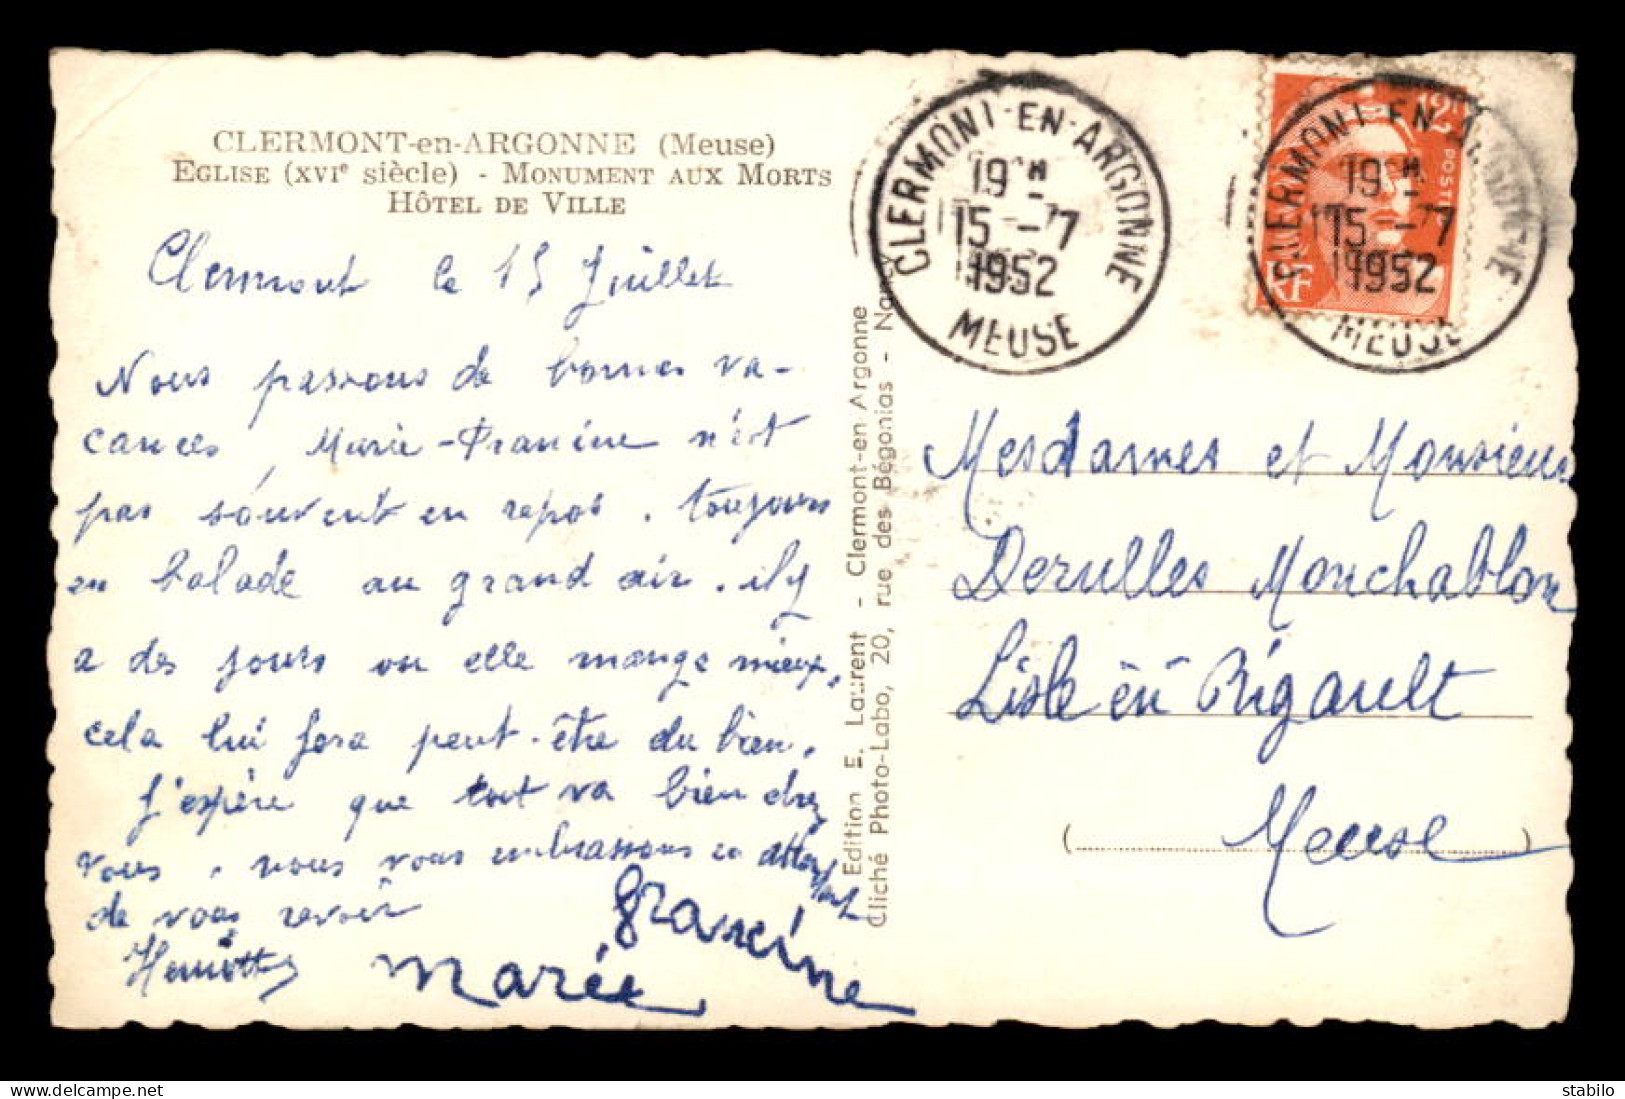 CLERMONT-en-ARGONNE (Meuse)
EGLISE (XVIe siècle) - MONUMENT AUX MORTS
HÔTEL DE VILLE
Clermont le 15 Juillet
Nous passons de bonnes va-
cances, Marie-Francine n'est
pas souvent en repos. toujours
en balade au grand air. il y
a des jours ou elle mange mieux,
cela lui fera peut-être du bien.
J'espère que tout va bien chez
vous. nous vous embrassons en attendant
de vous revoir
Henriette
Marie
Francine
Edition E. Laurent - Clermont-en Argonne
Cliché Photo-Labo, 20, rue des Bégonias - Nancy
CLERMONT-EN-ARGONNE
19H
15-7
1952
MEUSE
12F
POSTES
RF
CLERMONT-EN-ARGONNE
19H
15-7
1952
MEUSE
Mesdames et Monsieur
Derulles Monchablon
Lisle en Rigault
(Meuse)
stabilo